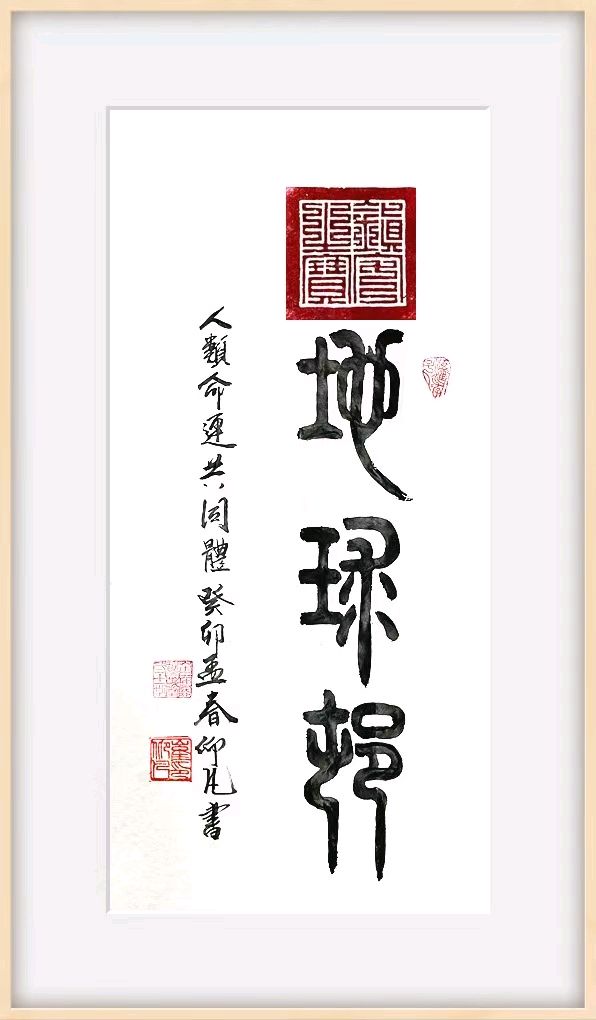 地球邨
人類命運共同體癸卯孟春仰凡書